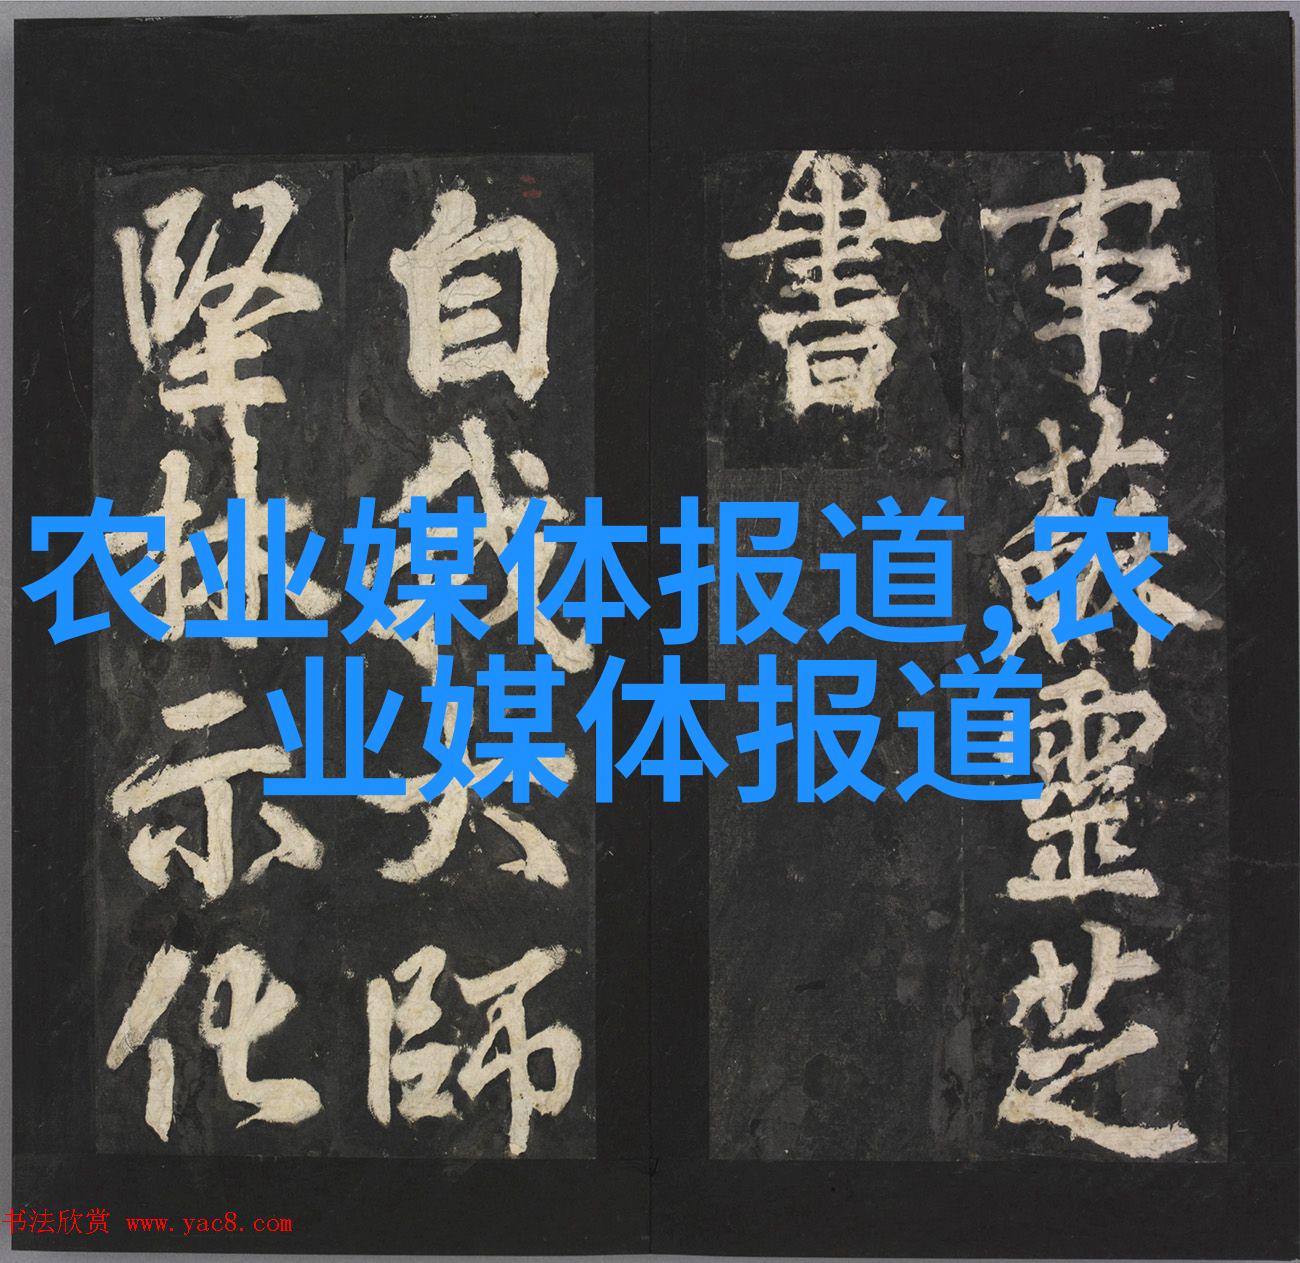 事蘇靈芝
書
自我大師
堅林示化
农业媒体报道,农
业媒体报道
书法欣赏 www.yac8.com